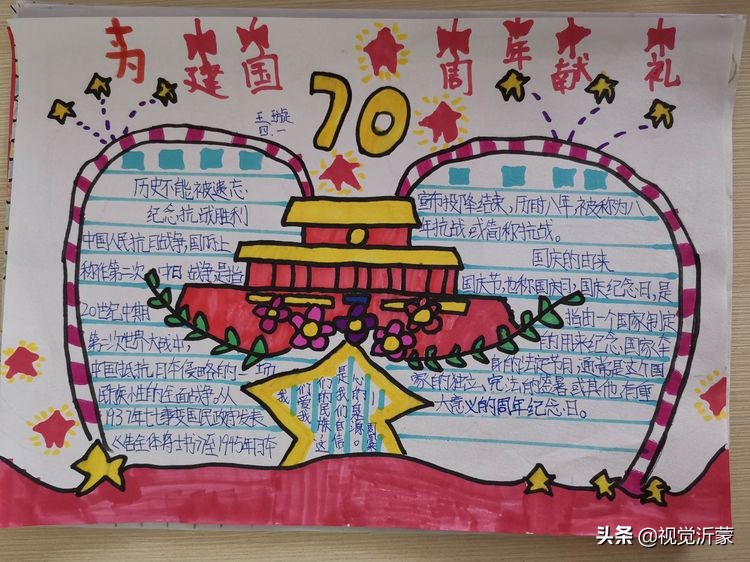 为建国周年献礼
70
四.一
历史不能被遗忘
纪念抗战胜利
中国人民抗日战争,国际上
称作第二次中日战争,是指
20世纪中期
第二次世界大战中,
中国抵抗日本侵略的一场
民族性的全面战争,从
1937年七七事变国民政府发表
《告全体将士书》至1945年日本
宣布投降结束,历时八年,被称为八
年抗战,或简称抗战。
国庆的由来
国庆节,也称国庆日,国庆纪念日,是
指由一个国家制定
的用来纪念国家本
身的法定节日,通常是这个国
家的独立、宪法的签署或其他有重
大意义的周年纪念日。
我们爱我们的民族,这
是我们自信
心的泉源。
——周恩来
头条 @视觉沂蒙